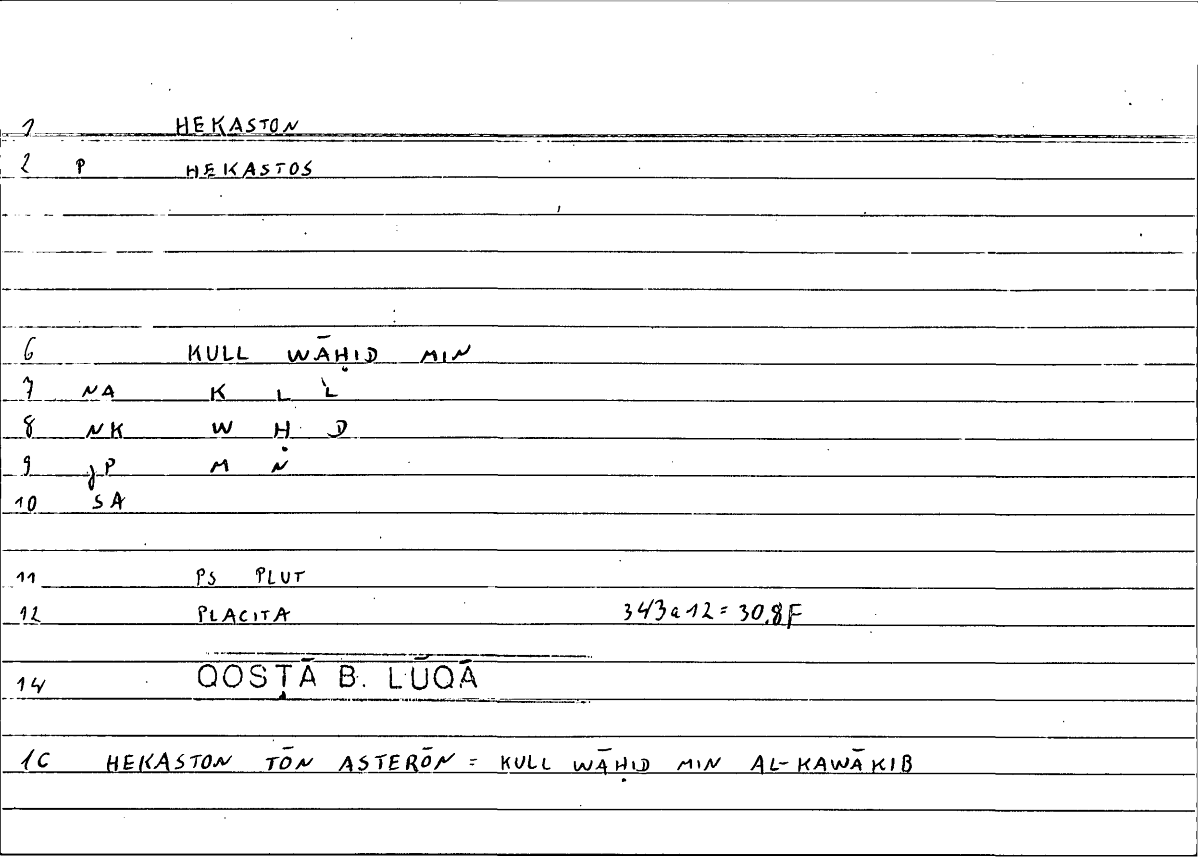 1 HEKASTON
2 P HEKASTOS
6 KULL WĀḤID MIN
7 NA K L L
8 NK W Ḥ D
9 jP M N
10 SA
11 PS PLUT
12 PLACITA 343a12=30,8F
14 QOSṬĀ B. LŪQĀ
1C HEKASTON TŌN ASTERŌN = KULL WĀḤID MIN AL-KAWĀKIB